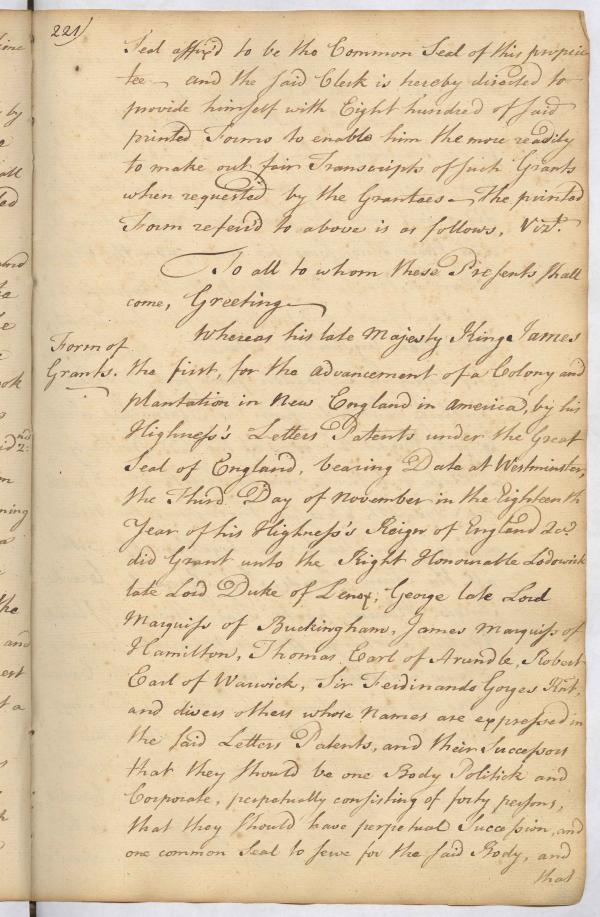 221)
Seal affix'd to be the Common Seal of this proprie
tee — and the said Clerk is hereby directed to
provide himself with Eight hundred of said
printed Forms to enable him the more readily
to make out fair Transcripts of such Grants
when requested by the Grantees — the printed
Form referr'd to above is as follows, Vizt.
To all to whom these Presents shall
come, Greeting —
Whereas his late Majesty King James
Form of
Grants.
the first, for the advancement of a Colony and
plantation in New England in america, by his
Highness's Letters Patents under the Great
Seal of England, bearing Date at Westminster,
the Third Day of November in the Eighteenth
Year of his Highness's Reign of England &c.
did Grant unto the Right Honourable Lodowick
late Lord Duke of Lenox, George late Lord
Marquiss of Buckingham, James Marquiss of
Hamilton, Thomas Earl of Arundle, Robert
Earl of Warwick, Sir Ferdinando Gorges Knt,
and divers others whose Names are expressed in
the said Letters Patents, and their Successors
that they should be one Body Politick and
Corporate, perpetually consisting of forty persons,
that they should have perpetual Succession, and
one common Seal to serve for the said Body, and
that